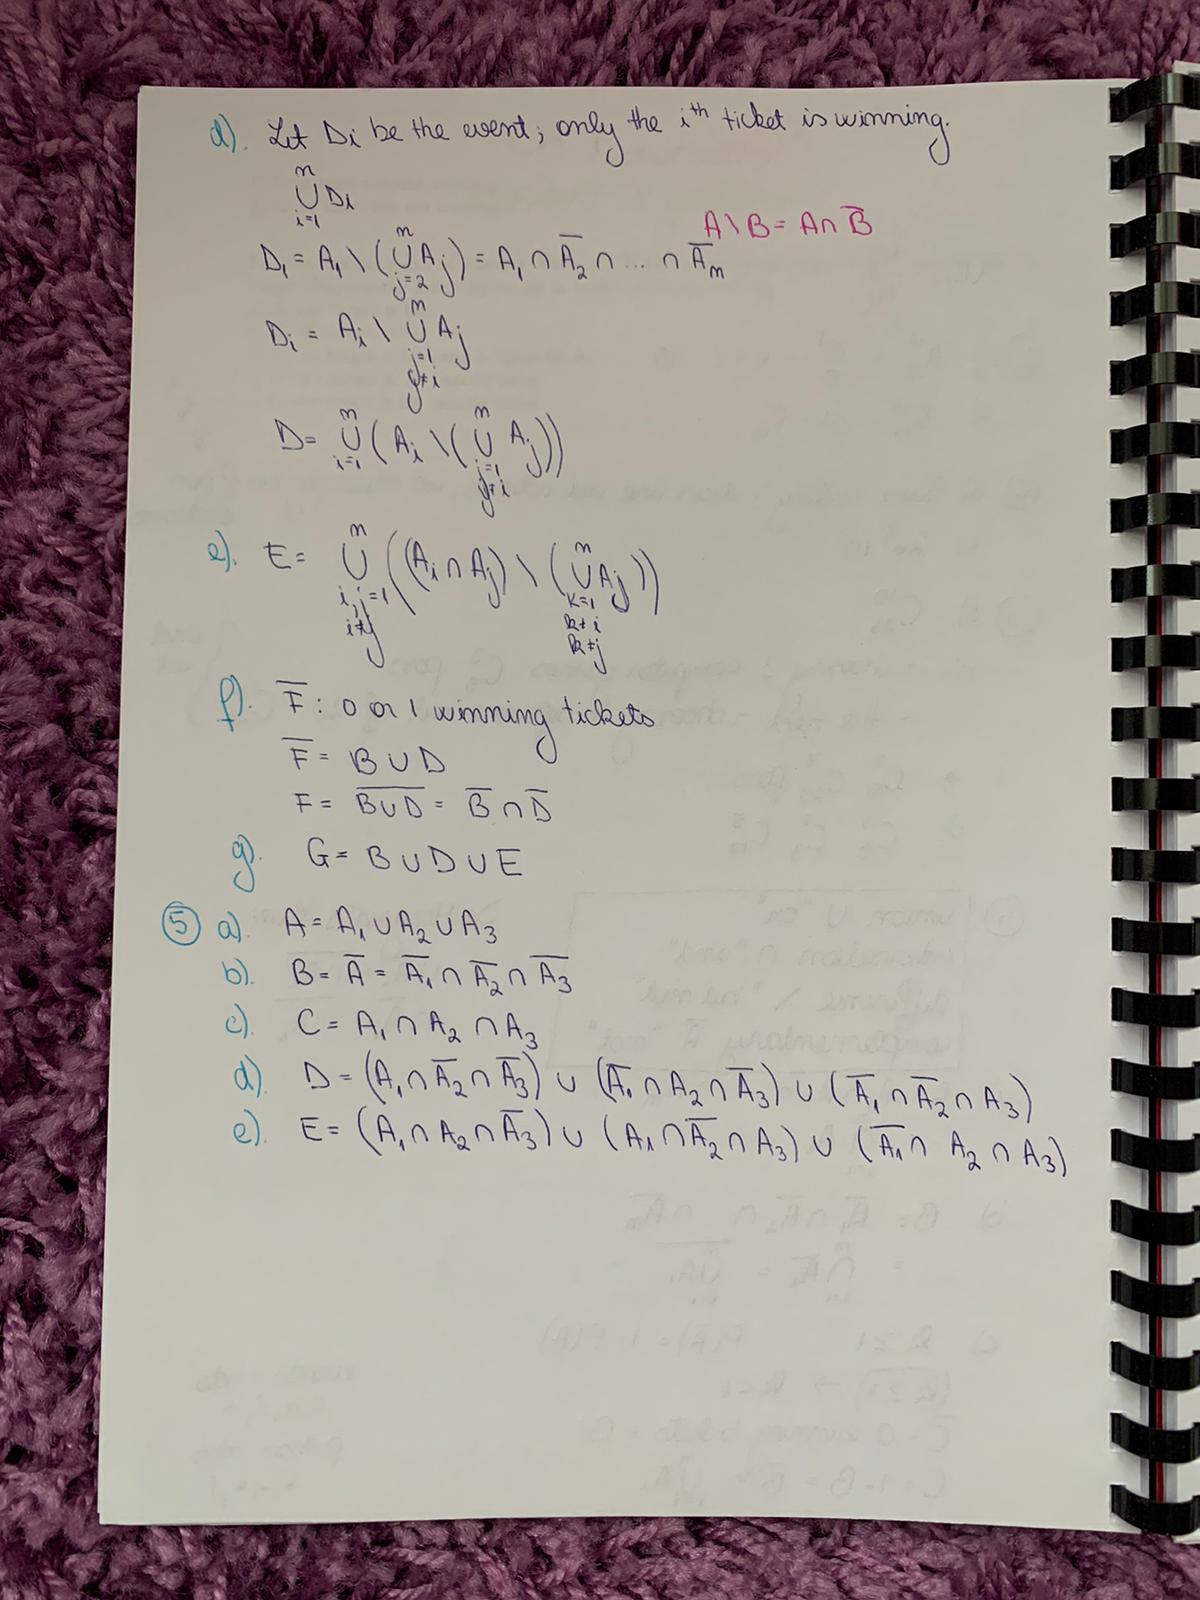 d). Let Di be the event; only the i^th ticket is winning.
n
∪ Di
i=1
A\B = A∩B̅
D₁ = A₁ \ (∪_{j=2}^{n} Aj) = A₁ ∩ A̅₂ ∩ ... ∩ A̅n
Di = Ai \ ∪_{j=1, j≠i}^{n} Aj
D = ∪_{i=1}^{n} (Ai \ (∪_{j=1, j≠i}^{n} Aj))
e). E = ∪_{i,j=1, i≠j}^{n} ((Ai ∩ Aj) \ (∪_{k=1, k≠i, k≠j}^{n} Aj))
f). F̅ : 0 or 1 winning tickets
F̅ = B ∪ D
F = \overline{B∪D} = B̅ ∩ D̅
g). G = B ∪ D ∪ E
⑤ a). A = A₁ ∪ A₂ ∪ A₃
b). B = A̅ = A̅₁ ∩ A̅₂ ∩ A̅₃
c). C = A₁ ∩ A₂ ∩ A₃
d). D = (A₁ ∩ A̅₂ ∩ A̅₃) ∪ (A̅₁ ∩ A₂ ∩ A̅₃) ∪ (A̅₁ ∩ A̅₂ ∩ A₃)
e). E = (A₁ ∩ A₂ ∩ A̅₃) ∪ (A₁ ∩ A̅₂ ∩ A₃) ∪ (A̅₁ ∩ A₂ ∩ A₃)